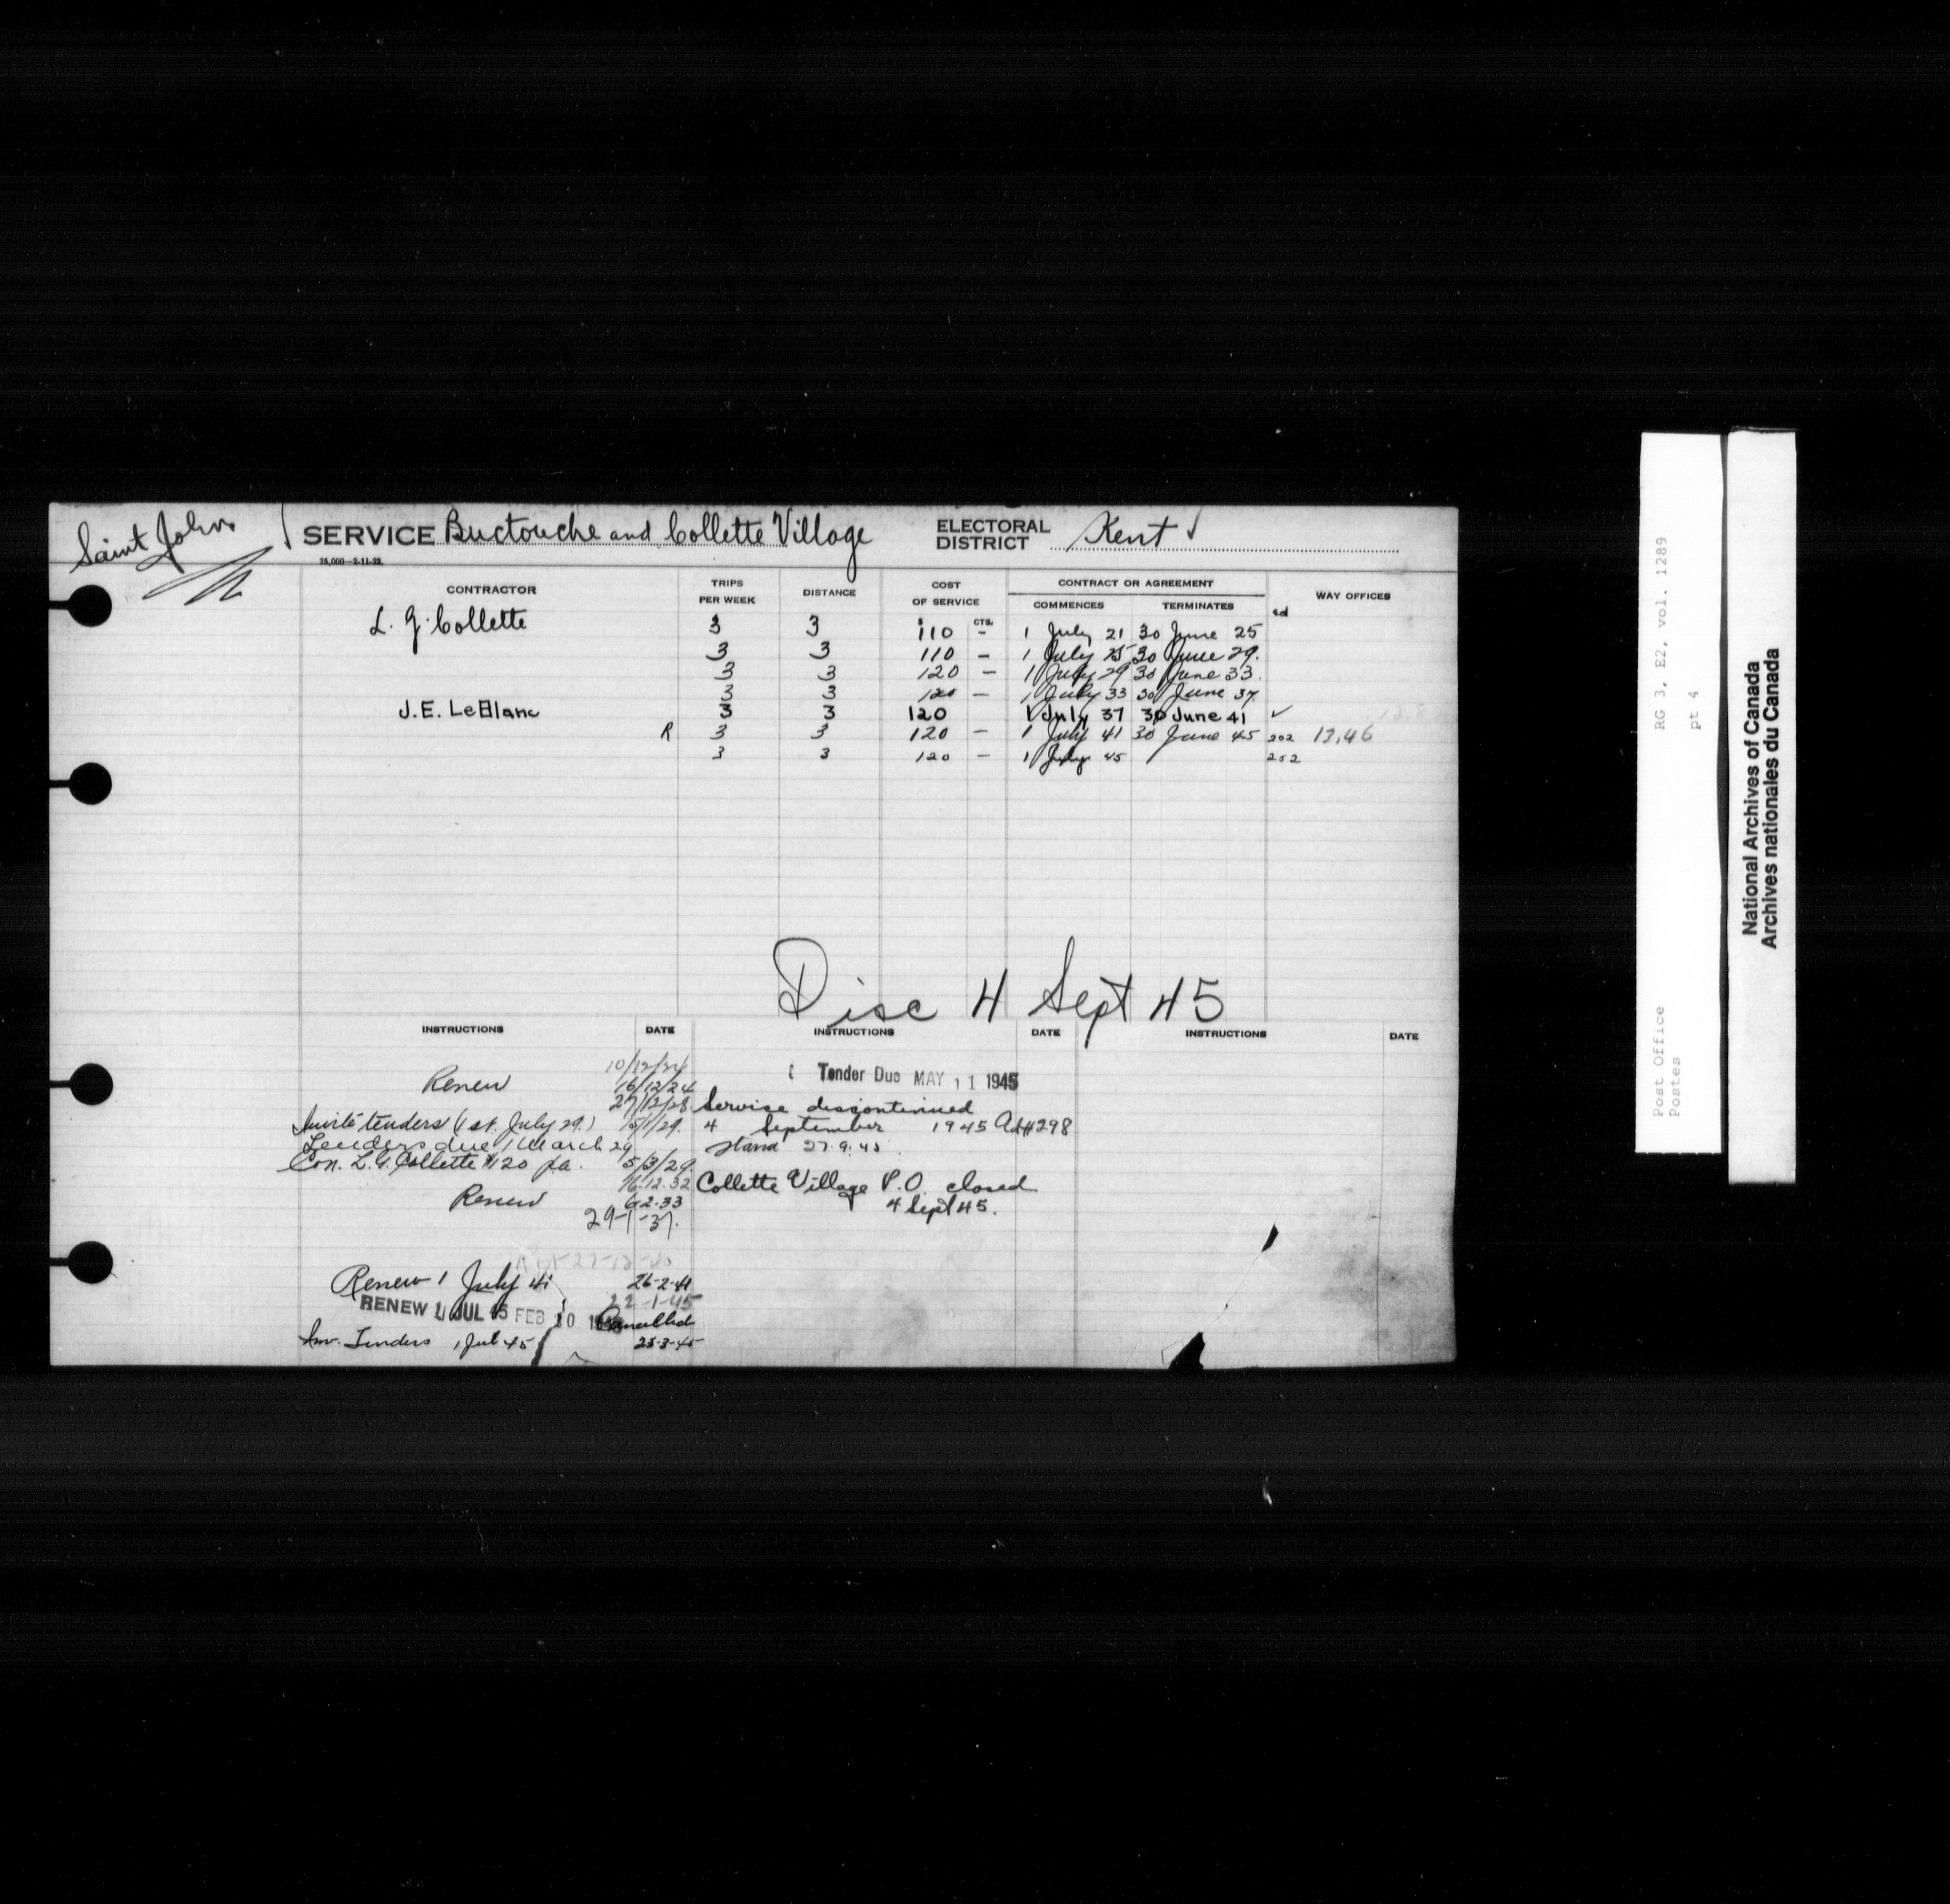 Saint John
SERVICE Buctouche and Collette Village
ELECTORAL DISTRICT Kent
25,000—2-11-22.
CONTRACTOR TRIPS PER WEEK DISTANCE COST OF SERVICE CONTRACT OR AGREEMENT WAY OFFICES
COMMENCES TERMINATES
$ CTS.
L. G. Collette 3 3 110 - 1 July 21 30 June 25
3 3 110 - 1 July 25 30 June 29.
3 3 120 - 1 July 29 30 June 33.
3 3 120 - 1 July 33 30 June 37
J.E. LeBlanc 3 3 120 1 July 37 30 June 41 ✓
R 3 3 120 - 1 July 41 30 June 45 202 13.46
3 3 120 - 1 July 45 252
Disc 4 Sept 45
INSTRUCTIONS DATE INSTRUCTIONS DATE INSTRUCTIONS DATE
10/12/24
Renew 16/12/24
27/12/28
Invite tenders (1st. July 29.) 15/1/29.
Tenders due 1 March 29
Con. L. G. Collette $120 pa. 5/3/29.
16.12.32
Renew 6.2.33
29-1-37.
Renew 1 July 41 26-2-41
22-1-45
RENEW 1 JUL 45 FEB 20 Cancelled
Inv. Tenders 1 Jul 45 23-3-45
Tender Due MAY 11 1945
Service discontinued
4 September 1945 Ad#298
27.9.45
Collette Village P.O. closed
4 Sept 45.
RG 3, E2, vol. 1289
pt 4
Post Office
Postes
National Archives of Canada
Archives nationales du Canada